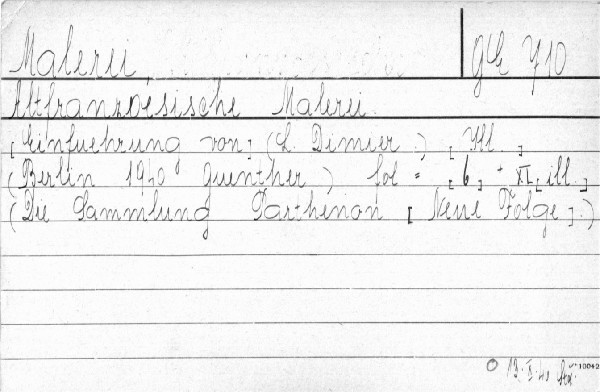 Malerei,
gE 710
Altfranzoesische Malerei.
[Einfuehrung von] (L. Dimier.) [Ill.]
(Berlin 1940 Guenther) fol = [6] + XL[ill.]
(Die Sammlung Parthenon [Neue Folge].)
10042